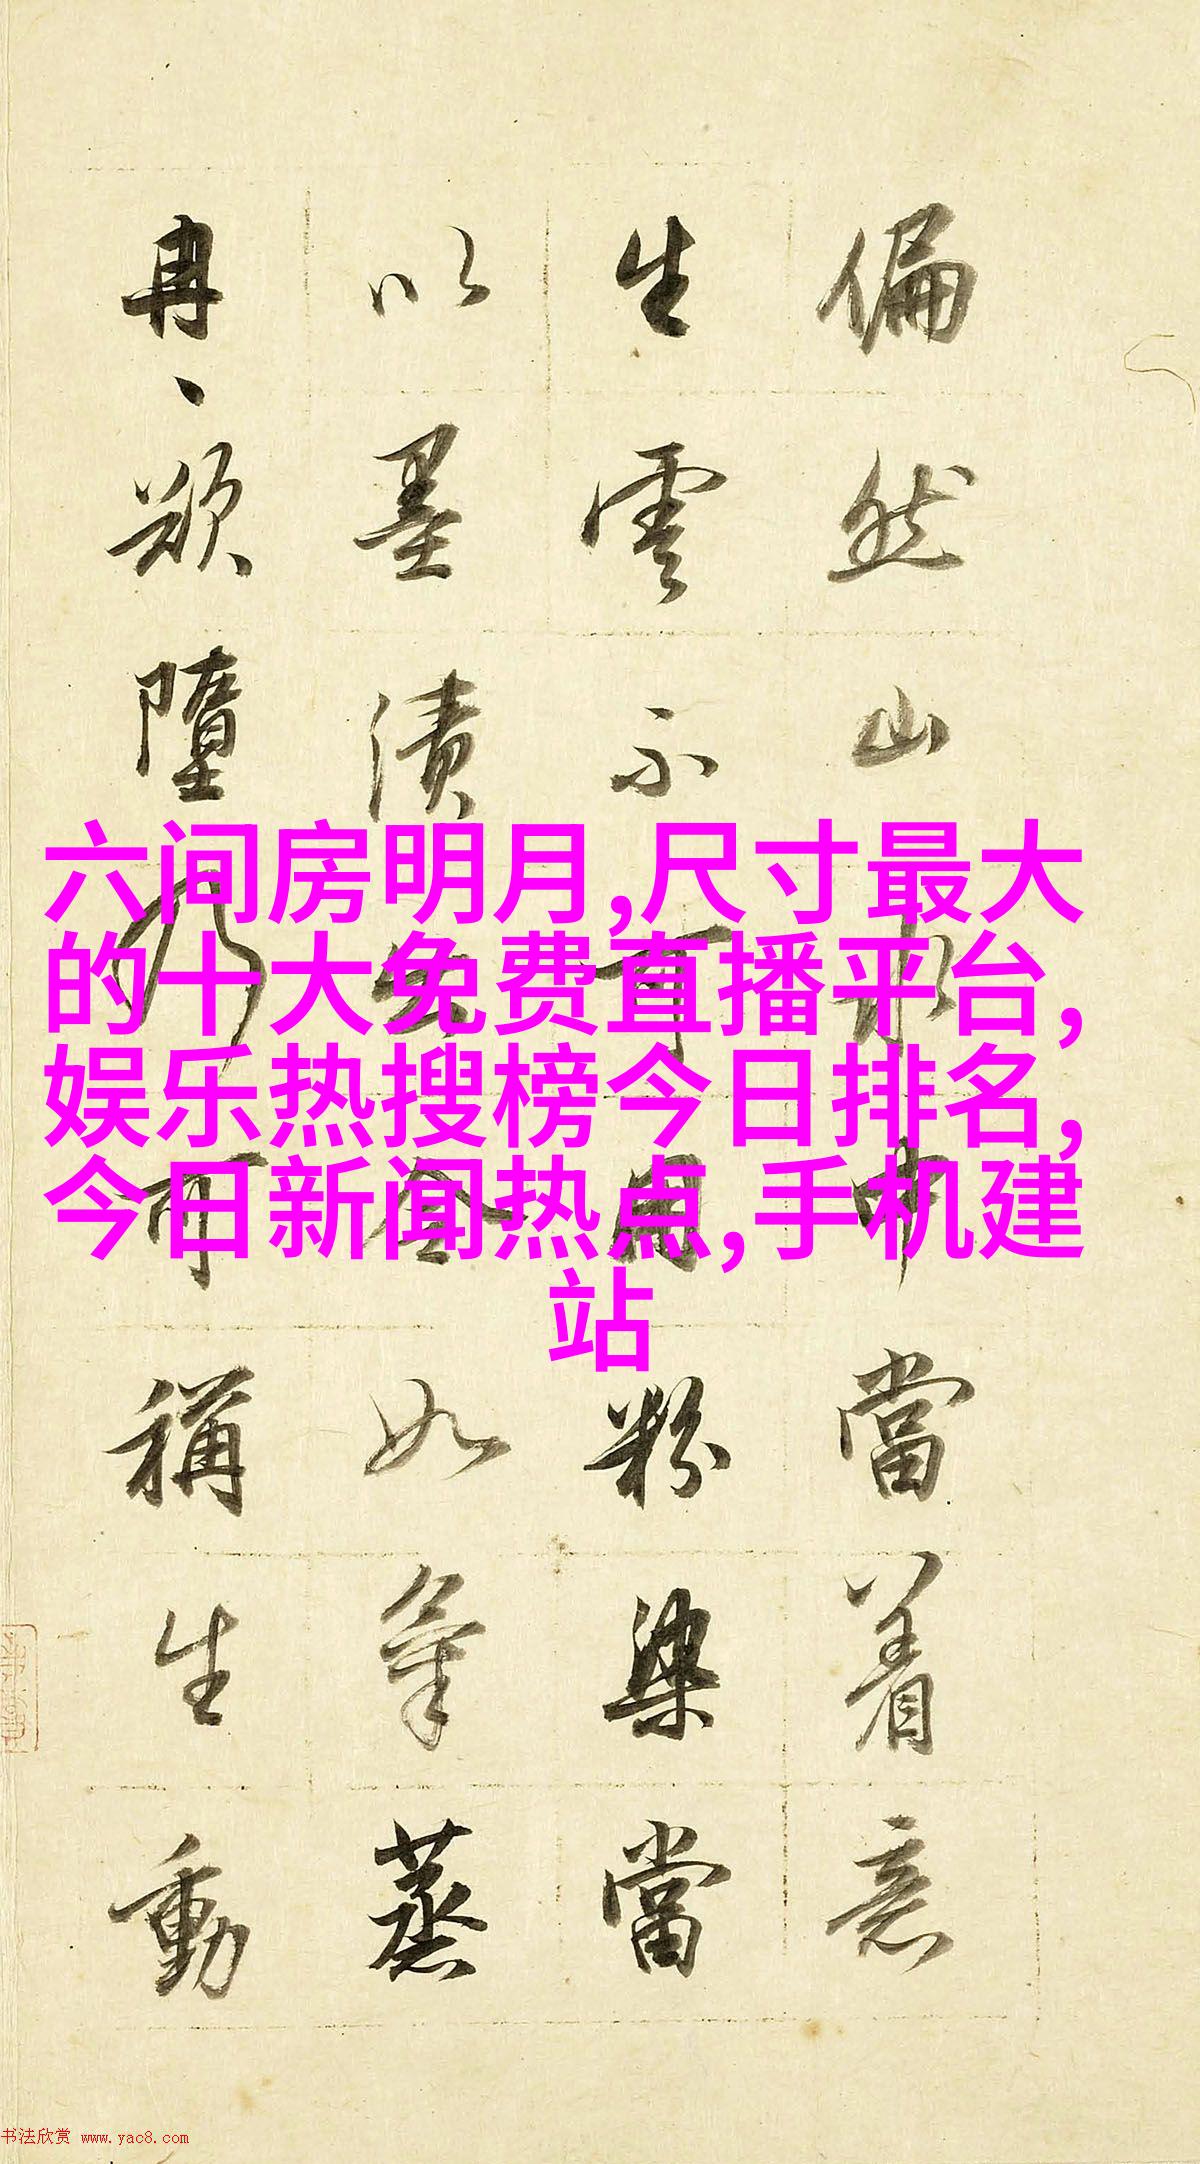 偏然山水中當着意
生雲不可用粉染當
以墨漬出令如氣蒸
冉、欲墮乃可稱生動
六间房明月,尺寸最大
的十大免费直播平台,
娱乐热搜榜今日排名,
今日新闻热点,手机建
站
书法欣赏 www.yac8.com